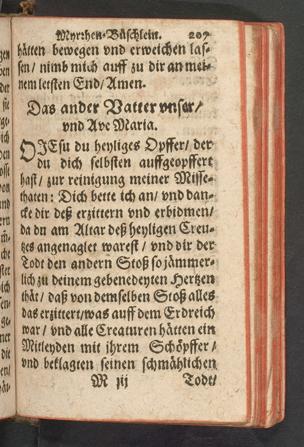 Myrrhen-Büschlein. 207
hätten bewegen vnd erweichen las-
sen/ nimb mich auff zu dir an mei-
nem letsten End/ Amen.
Das ander Vatter vnser/
vnd Ave Maria.
OJEsu du heyliges Opffer/ der
du dich selbsten auffgeopffert
hast/ zur reinigung meiner Misse-
thaten: Dich bette ich an/ vnd dan-
cke dir deß erzittern vnd erbidmen/
da du am Altar deß heyligen Creu-
tzes angenaglet warest/ vnd dir der
Todt den andern Stoß so jämmer-
lich zu deinem gebenedeyten Hertzen
thät/ daß von demselben Stoß alles
das erzittert/ was auff dem Erdreich
war/ vnd alle Creaturen hätten ein
Mitleyden mit ihrem Schöpffer/
vnd beklagten seinen schmählichen
M iij Todt/